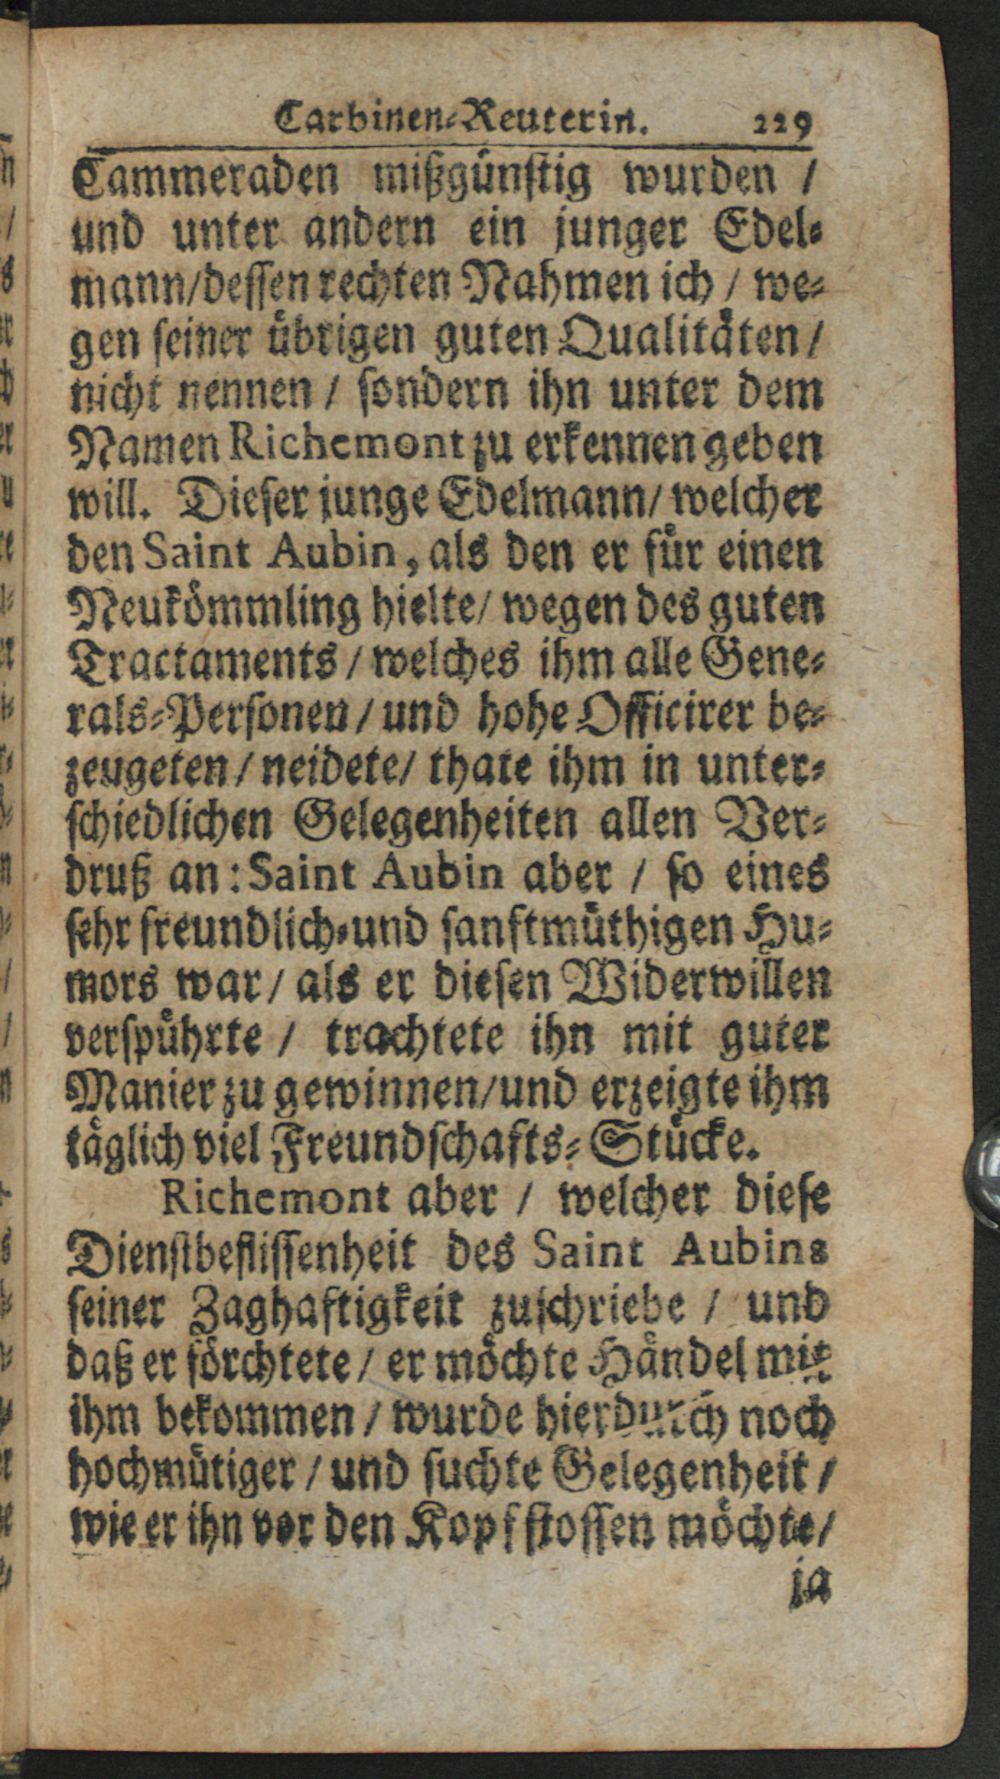 Carbinen-Reuterin. 229
Cammeraden mißgünstig wurden /
und unter andern ein junger Edel-
mann/dessen rechten Nahmen ich / we-
gen seiner übrigen guten Qualitäten /
nicht nennen / sondern ihn unter dem
Namen Richemont zu erkennen geben
will. Dieser junge Edelmann/ welcher
den Saint Aubin, als den er für einen
Neukömmling hielte/ wegen des guten
Tractaments / welches ihm alle Gene-
rals-Personen / und hohe Officirer be-
zeugeten / neidete/ thate ihm in unter-
schiedlichen Gelegenheiten allen Ver-
druß an: Saint Aubin aber / so eines
sehr freundlich-und sanftmüthigen Hu-
mors war / als er diesen Widerwillen
verspührte / trachtete ihn mit guter
Manier zu gewinnen/und erzeigte ihm
täglich viel Freundschafts-Stücke.
Richemont aber / welcher diese
Dienstbeflissenheit des Saint Aubins
seiner Zaghaftigkeit zuschriebe / und
daß er förchtete / er möchte Händel mit
ihm bekommen / wurde hierdurch noch
hochmütiger / und suchte Gelegenheit /
wie er ihn vor den Kopf stossen möchte/
ja